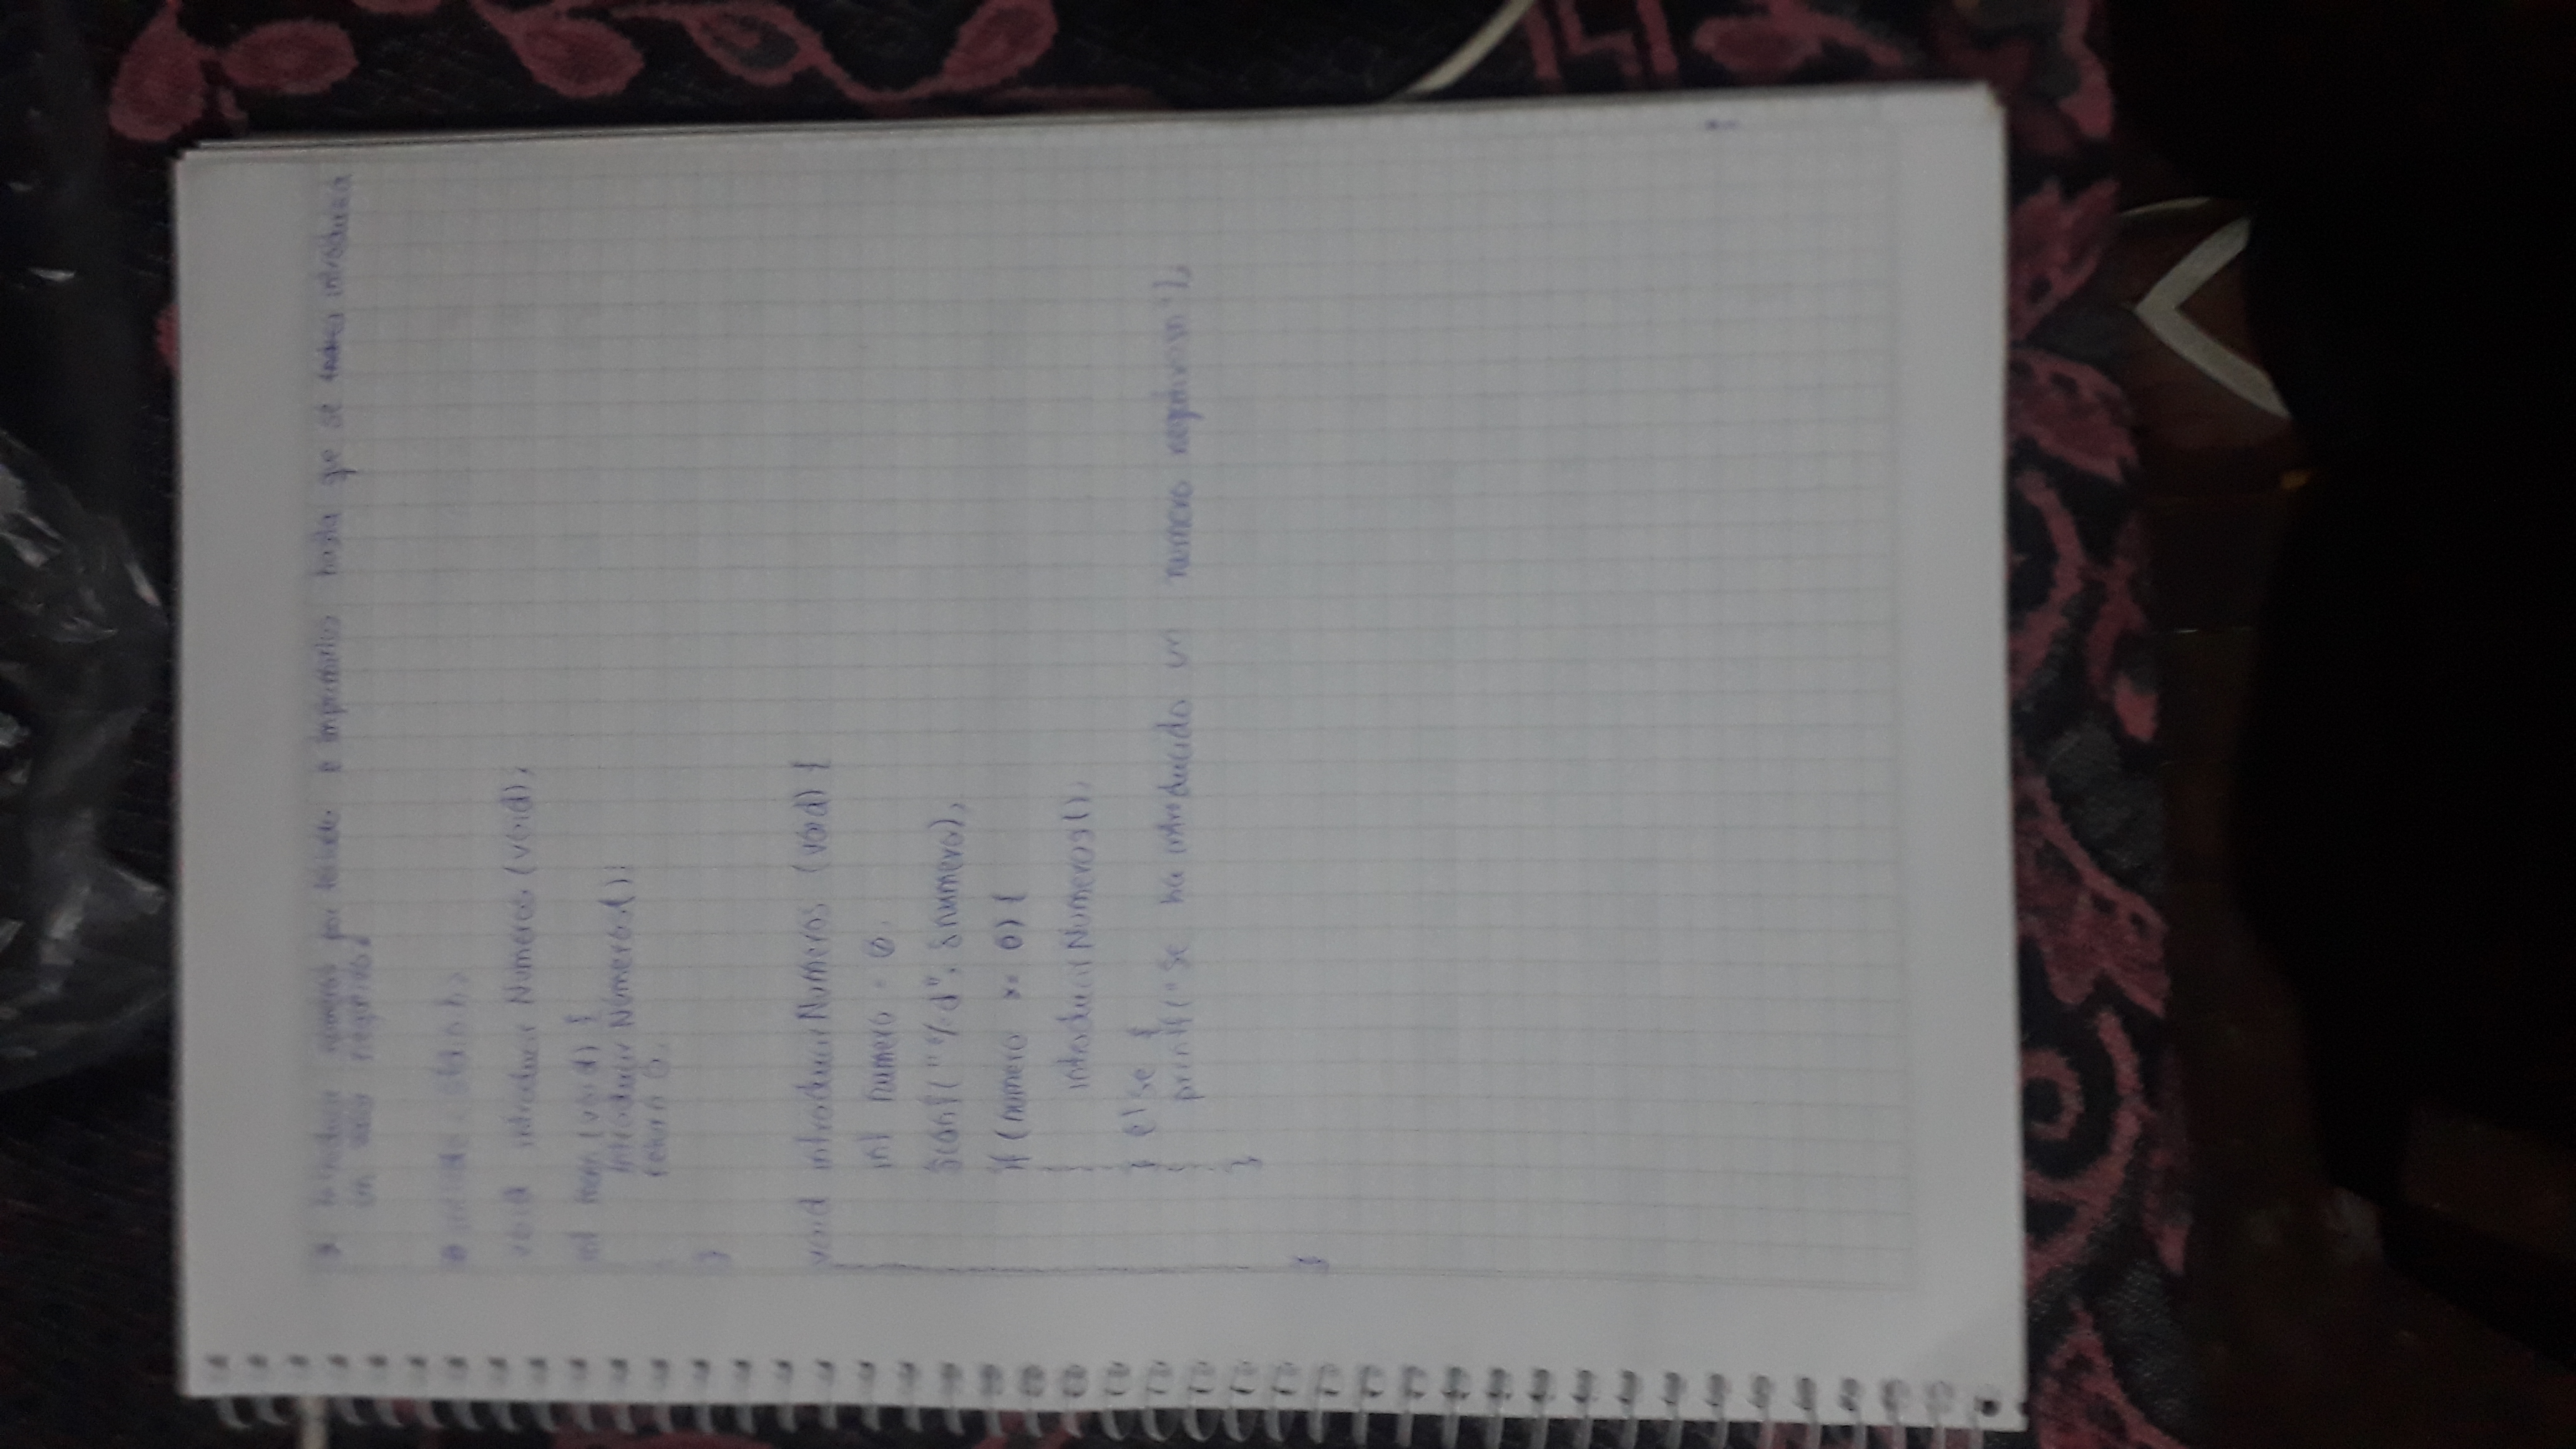 3. Introducir numeros por teclado e imprimirlos hasta que se introduzca
un valor negativo.
# include <stdio.h>
void introducirNumeros (void);
int main (void) {
introducirNumeros();
return 0;
}
void introducirNumeros (void) {
int numero = 0;
scanf("%d", &numero);
if (numero >= 0) {
introducirNumeros();
} else {
printf("Se ha introducido un numero negativo\n");
}
}